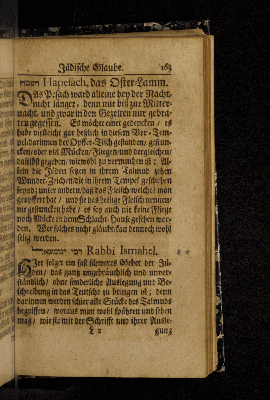 Jüdische Glaube. 163
הפסח Hapesach, das Oster-Lamm.
DAs Pesach ward alleine bey der Nacht,
nicht länger, denn nur biß zur Mitter-
nacht, und zwar in den Gezelten nur gebra-
ten gegessen. Es möchte einer gedencken / es
habe vielleicht gar heßlich in diesem Vor-Tem-
pel / darinnen der Opffer-Tisch gestanden / gestun-
cken / oder viel Mücken / Fliegen und dergleichen /
daselbst gegeben / wiewohl zu vermuthen ist; Al-
lein die Jüden setzen in ihrem Talmud zehen
Wunder-Zeichen / die in ihrem Tempel geschehen
seynd; unter andern / daß das Fleisch welches man
geopffert hat / und sie das heilige Fleisch nennen
nie gestuncken habe / es sey auch nie keine Fliege
noch Mücke in dem Schlacht-Hauß gesehen wor-
den. Wer solches nicht gläubt / kan dennoch wohl
selig werden.
רבי ישמעאל Rabbi Ismahel.
HIer folget ein fast schweres Gebet der Jü-
den / das gantz ungebräuchlich und unver-
ständlich / ohne sonderliche Auslegung und Be-
schreibung in das Teutsche zu bringen ist; denn
darinnen werden schier alle Stücke des Talmuds
begriffen / woraus man wohl spühren und sehen
mag / wie sie mit der Schrifft und ihrer Ausle-
L 2 gung